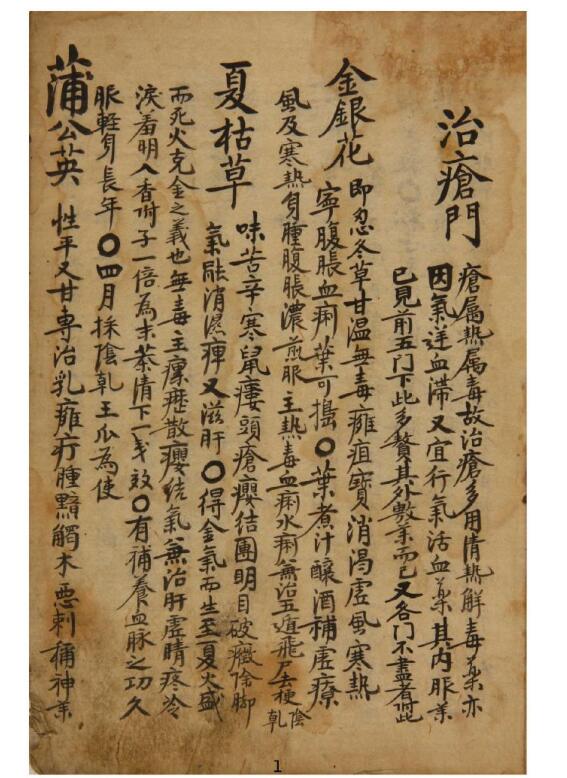 治瘡門
瘡属热属毒故治瘡多用清热解毒藥亦
因氣逆血滯又宜行氣活血藥其内服藥
已見前五門下此多贅其外敷藥而已又各門不盡者附此
金銀花 即忍冬草甘温無毒癰疽寶消渴虚風寒熱
寧腹脹血痢葉可搗〇葉煮汁釀酒補虚療
風及寒热身腫腹脹濃煎服主热毒血痢水痢兼治五遁飛尸去梗陰乹
夏枯草 味苦辛寒鼠瘻頭瘡癭结團明目破癥除脚
氣融消濕痺又滋肝〇得金氣而生至夏火盛
而死火克金之義也無毒主瘰癧散癭结氣兼治肝虚睛疼冷
淚羞明入香附子一倍為末茶清下一戔效〇有補養血脉之功久
服輕身長年〇四月採陰乹王瓜為使
蒲公英 性平又甘専治乳癰疔腫觸木惡刺稱神藥
1